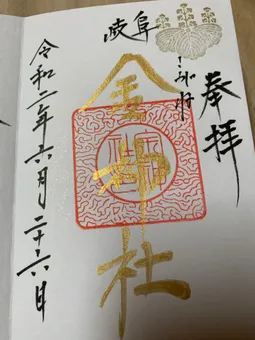 奉拝
岐阜
金神社
令和二年六月二十六日